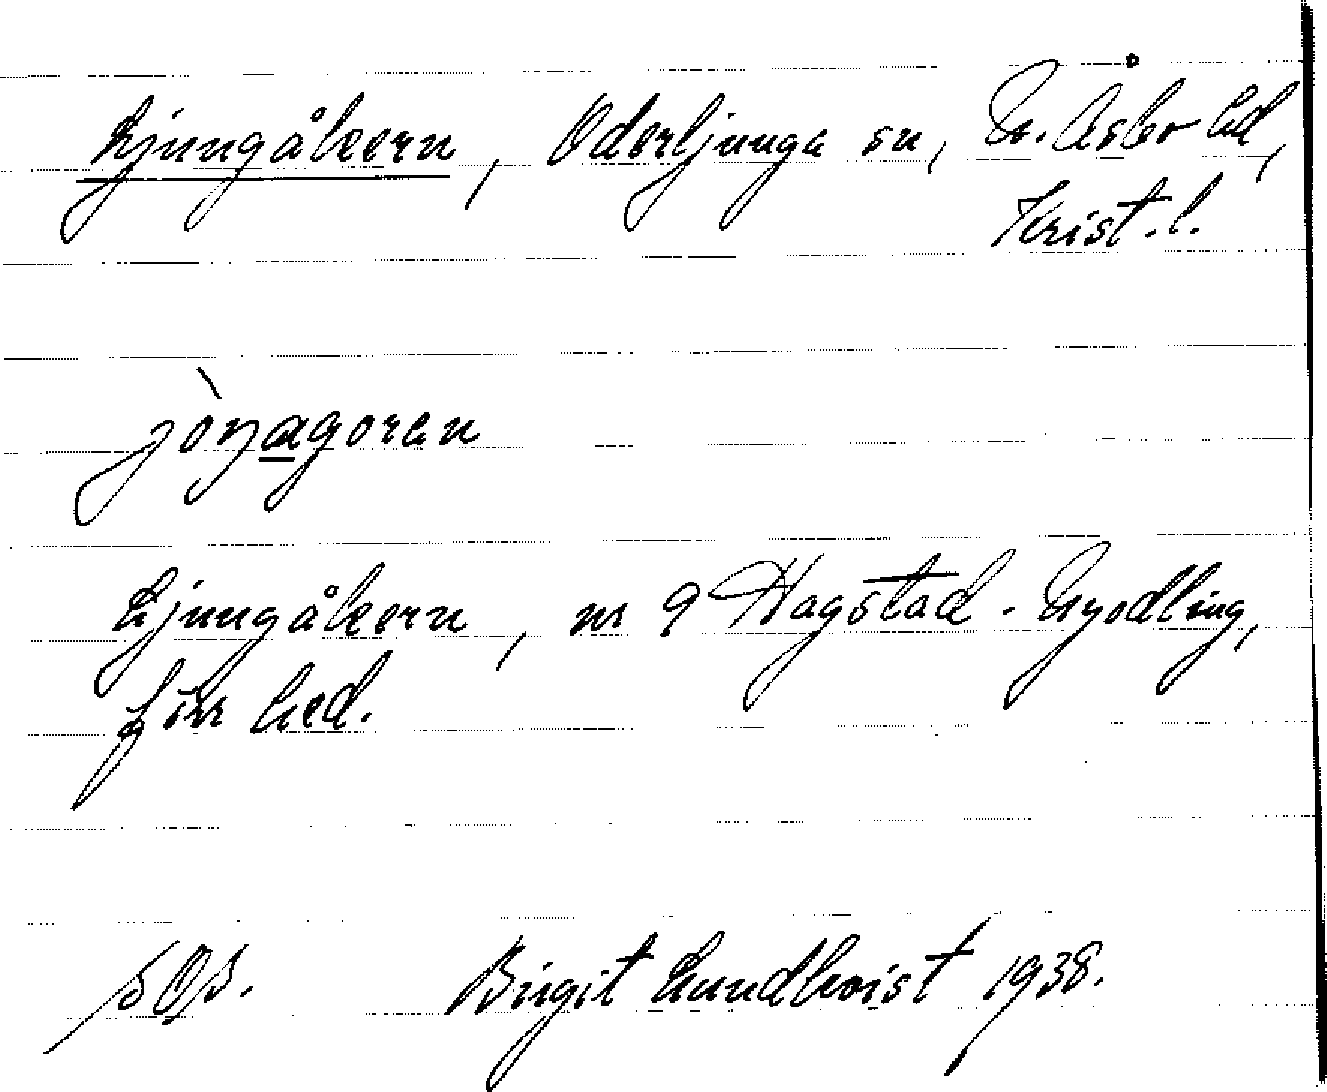 Ljungåkern, Oderljunga sn, N. Åsbo hd,
Krist. l.
jòŋagoren
Ljungåkern, nr 9 Hagstad. Nyodling,
förr hed.
SOS. Birgit Lundkvist 1938.